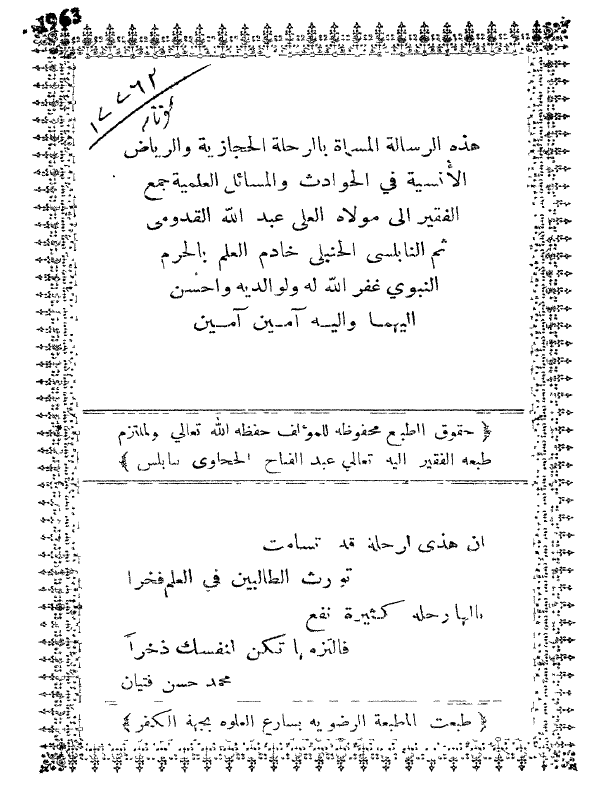 1963
١٧٧٦٢
هذه الرسالة المسماة باالرحلة الحجازية والرياض
الأنسية في الحوادث والمسائل العلمية جمع
الفقير الى مولاه العلي عبد الله القدومى
ثم النابلسى الحنبلى خادم العلم بالحرم
النبوي غفر الله له ولوالديه واحسن
اليهما واليه آمين آمين
﴿ حقوق الطبع محفوظه للمؤلف حفظه الله تعالي ولملتزم
طبعه الفقير اليه تعالي عبد الفتاح الحجاوى نابلس ﴾
ان هذى ارحلة قد تسامت
تورث الطالبين في العلم فخرا
رحله كثيرة نفع
فالتزمها تكن لنفسك ذخراً
محمد حسن فتيان
﴿ طبعت المطبعة الرضويه بسارع العلوه بجهة ﴾